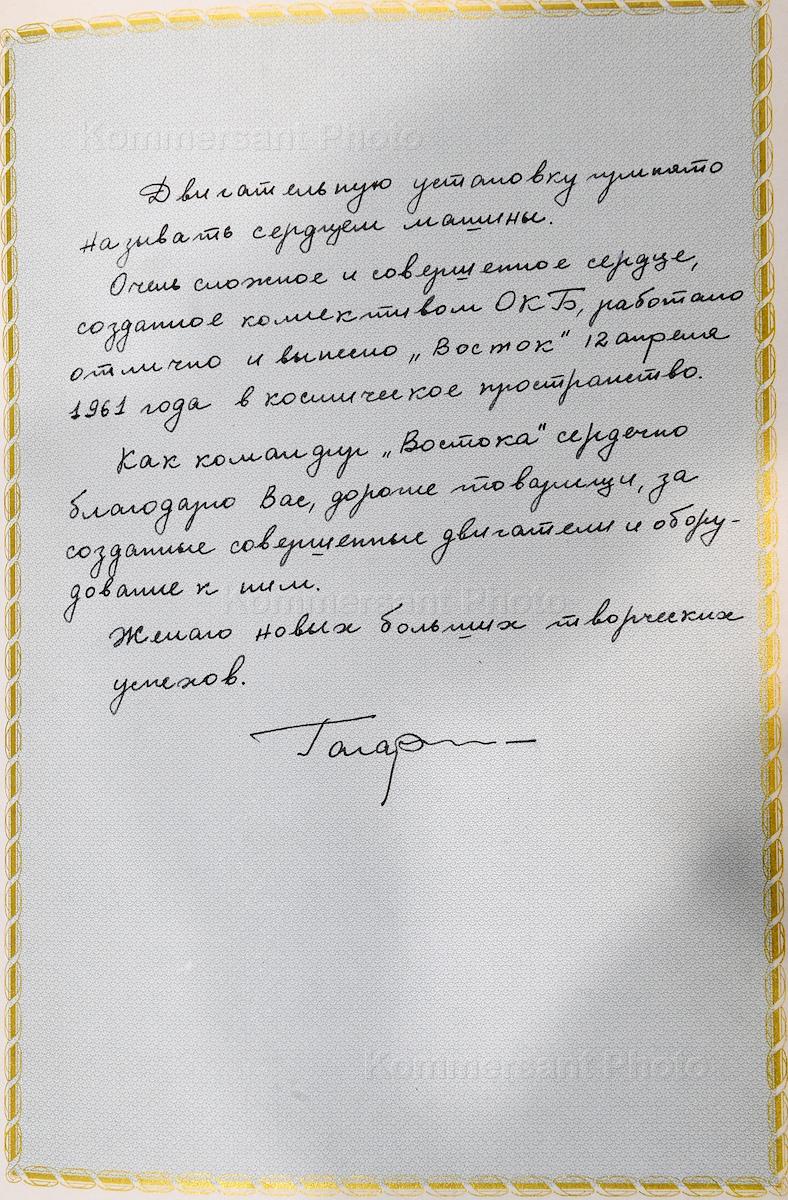 Kommersant Photo
Двигательную установку принято
называть сердцем машины.
Очень сложное и совершенное сердце,
созданное коллективом ОКБ, работало
отлично и вынесло „Восток" 12 апреля
1961 года в космическое пространство.
Как командир „Востока" сердечно
благодарю Вас, дорогие товарищи, за
созданные совершенные двигатели и обору-
дование к ним.
Kommersant Photo
Желаю новых больших творческих
успехов.
Гагарин
Kommersant Photo